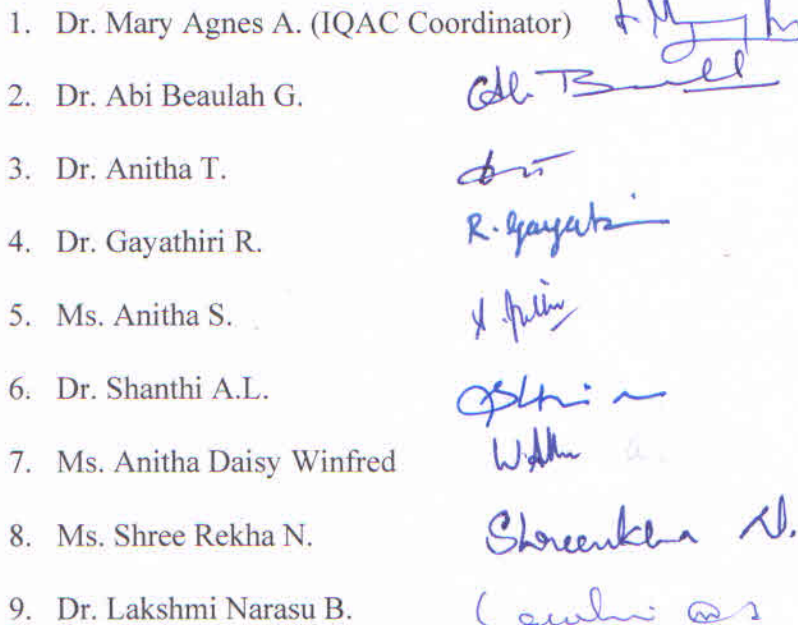 1. Dr. Mary Agnes A. (IQAC Coordinator)
2. Dr. Abi Beaulah G.
3. Dr. Anitha T.
4. Dr. Gayathiri R. R. Gayatri
5. Ms. Anitha S.
6. Dr. Shanthi A.L.
7. Ms. Anitha Daisy Winfred
8. Ms. Shree Rekha N. Shreerekha N.
9. Dr. Lakshmi Narasu B.